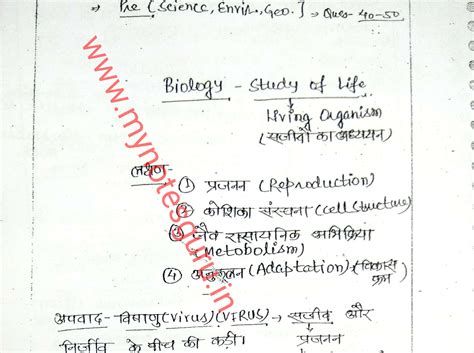 ⇒ Pre [Science, Envir., Geo.] ⇒ Ques- 40-50
Biology - Study of Life
Living Organism
(सजीवों का अध्ययन)
लक्षण-
① प्रजनन (Reproduction)
② कोशिका संरचना (cell structure)
③ जैव रासायनिक अभिक्रिया
- Metobolism)
④ अनुकूलन (Adaptation) (विकास
क्रम)
अपवाद- विषाणु (Virus) (VIRUS) → सजीव और
निर्जीव के बीच की कड़ी। प्रजनन
www.mynotesguru.in